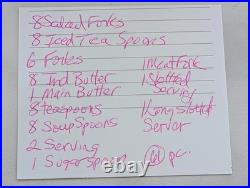 8 Salad Forks
8 Iced Tea Spoons
6 Forks
8 Ind Butter
1 Main Butter
8 teaspoons
8 Soup Spoons
2 Serving
1 Sugar spoon
1 Meat Fork
1 Slotted
Serving
1 Long Slotted
Server
61 pc.